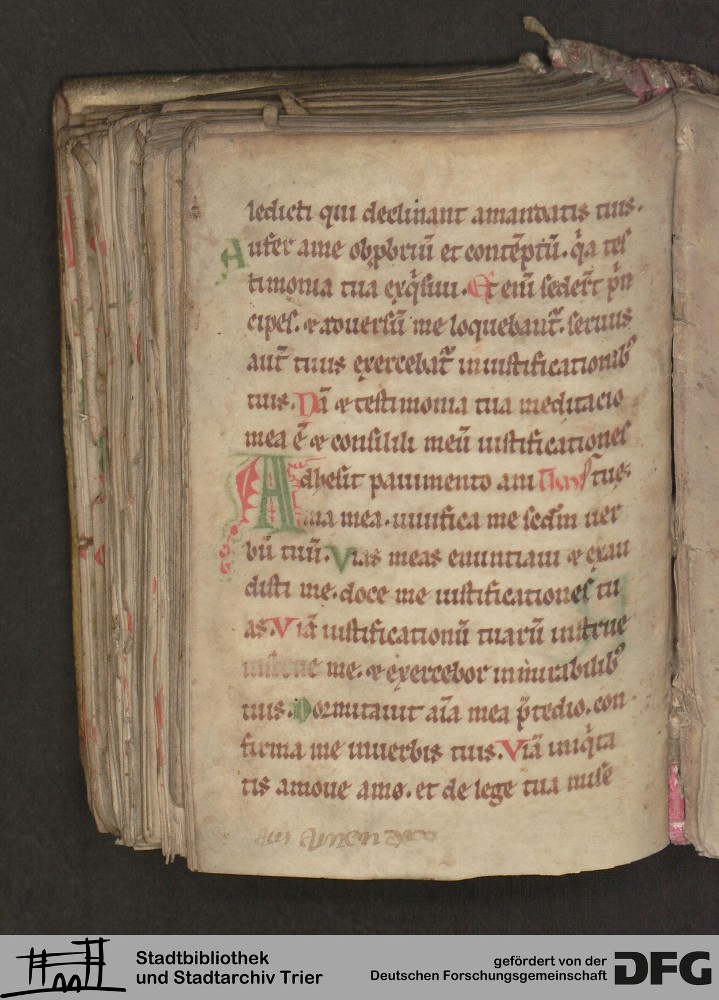 ledicti qui declinant amandatis tuis.
Aufer ame obp̱briū et contēptū. qͥa tes
timonia tua exqͥsiui. Et eni̅ sedert̄ pͥn
cipes. & aduersū me loquebant᷑. seruus
aut̄ tuus exercebat᷑ iniustificationibꝰ
tuis. Nā & testimonia tua meditacio
mea ē & consiliū meū iustificationes
Adhesit pauimento ani tue.
ma mea. uiuifica me scd̄m uer
bū tuū. Vias meas enuntiaui & exau
disti me. doce me iustificationes tu
as. Viā iustificationū tuarū instrue
instrue me. & exercebor inmirabilibꝰ
tuis. Dormitauit aīa mea p̄tedio. con
firma me inuerbis tuis. Viā iniqͥta
tis amoue ame. et de lege tua mise
Stadtbibliothek
und Stadtarchiv Trier
gefördert von der
Deutschen Forschungsgemeinschaft
DFG